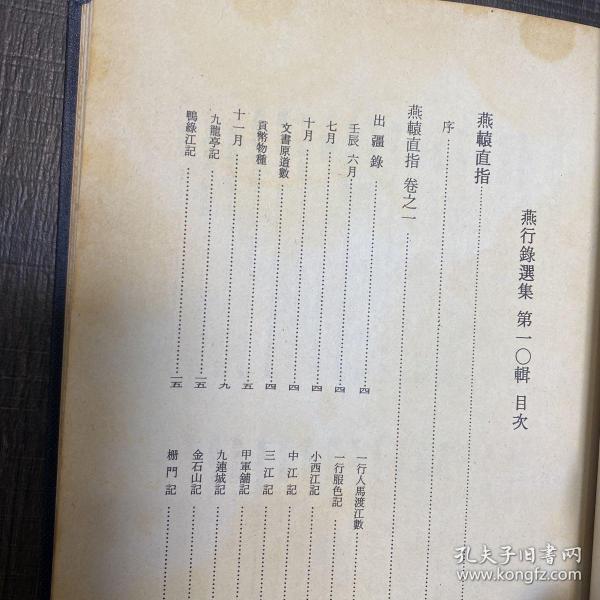 燕行錄選集 第一〇輯 目次
燕轅直指
序
燕轅直指 卷之一
出疆錄
壬辰 六月 四
七月 四
十月 四
文書原道數 四
貢幣物種 五
十一月 九
九龍亭記 一五
鴨綠江記 一五
一行人馬渡江數
一行服色記
小西江記
中江記
三江記
甲軍舖記
九連城記
金石山記
柵門記
孔夫子旧书网
www.kongfz.com